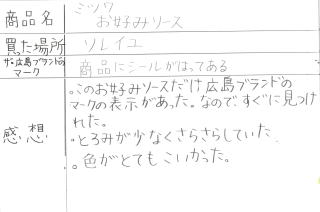 商品名 ミツワ
お好みソース
買った場所 ソレイユ
ザ・広島ブランドの
マーク 商品にシールがはってある
感想 。このお好みソースだけ広島ブランドの
マークの表示があった。なのですぐに見つけ
れた。
。とろみが少なくさらさらしていた。
。色がとてもこいかった。